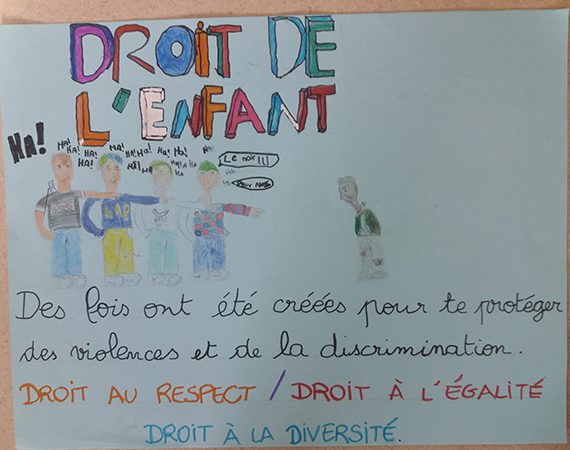 DROIT DE
L'ENFANT
HA!
HA! HA! HA! HA! HA! HA! Ho!
HA! HA
Le noir!!!
Des lois ont été créées pour te protéger
des violences et de la discrimination.
DROIT AU RESPECT / DROIT À L'ÉGALITÉ
DROIT À LA DIVERSITÉ.